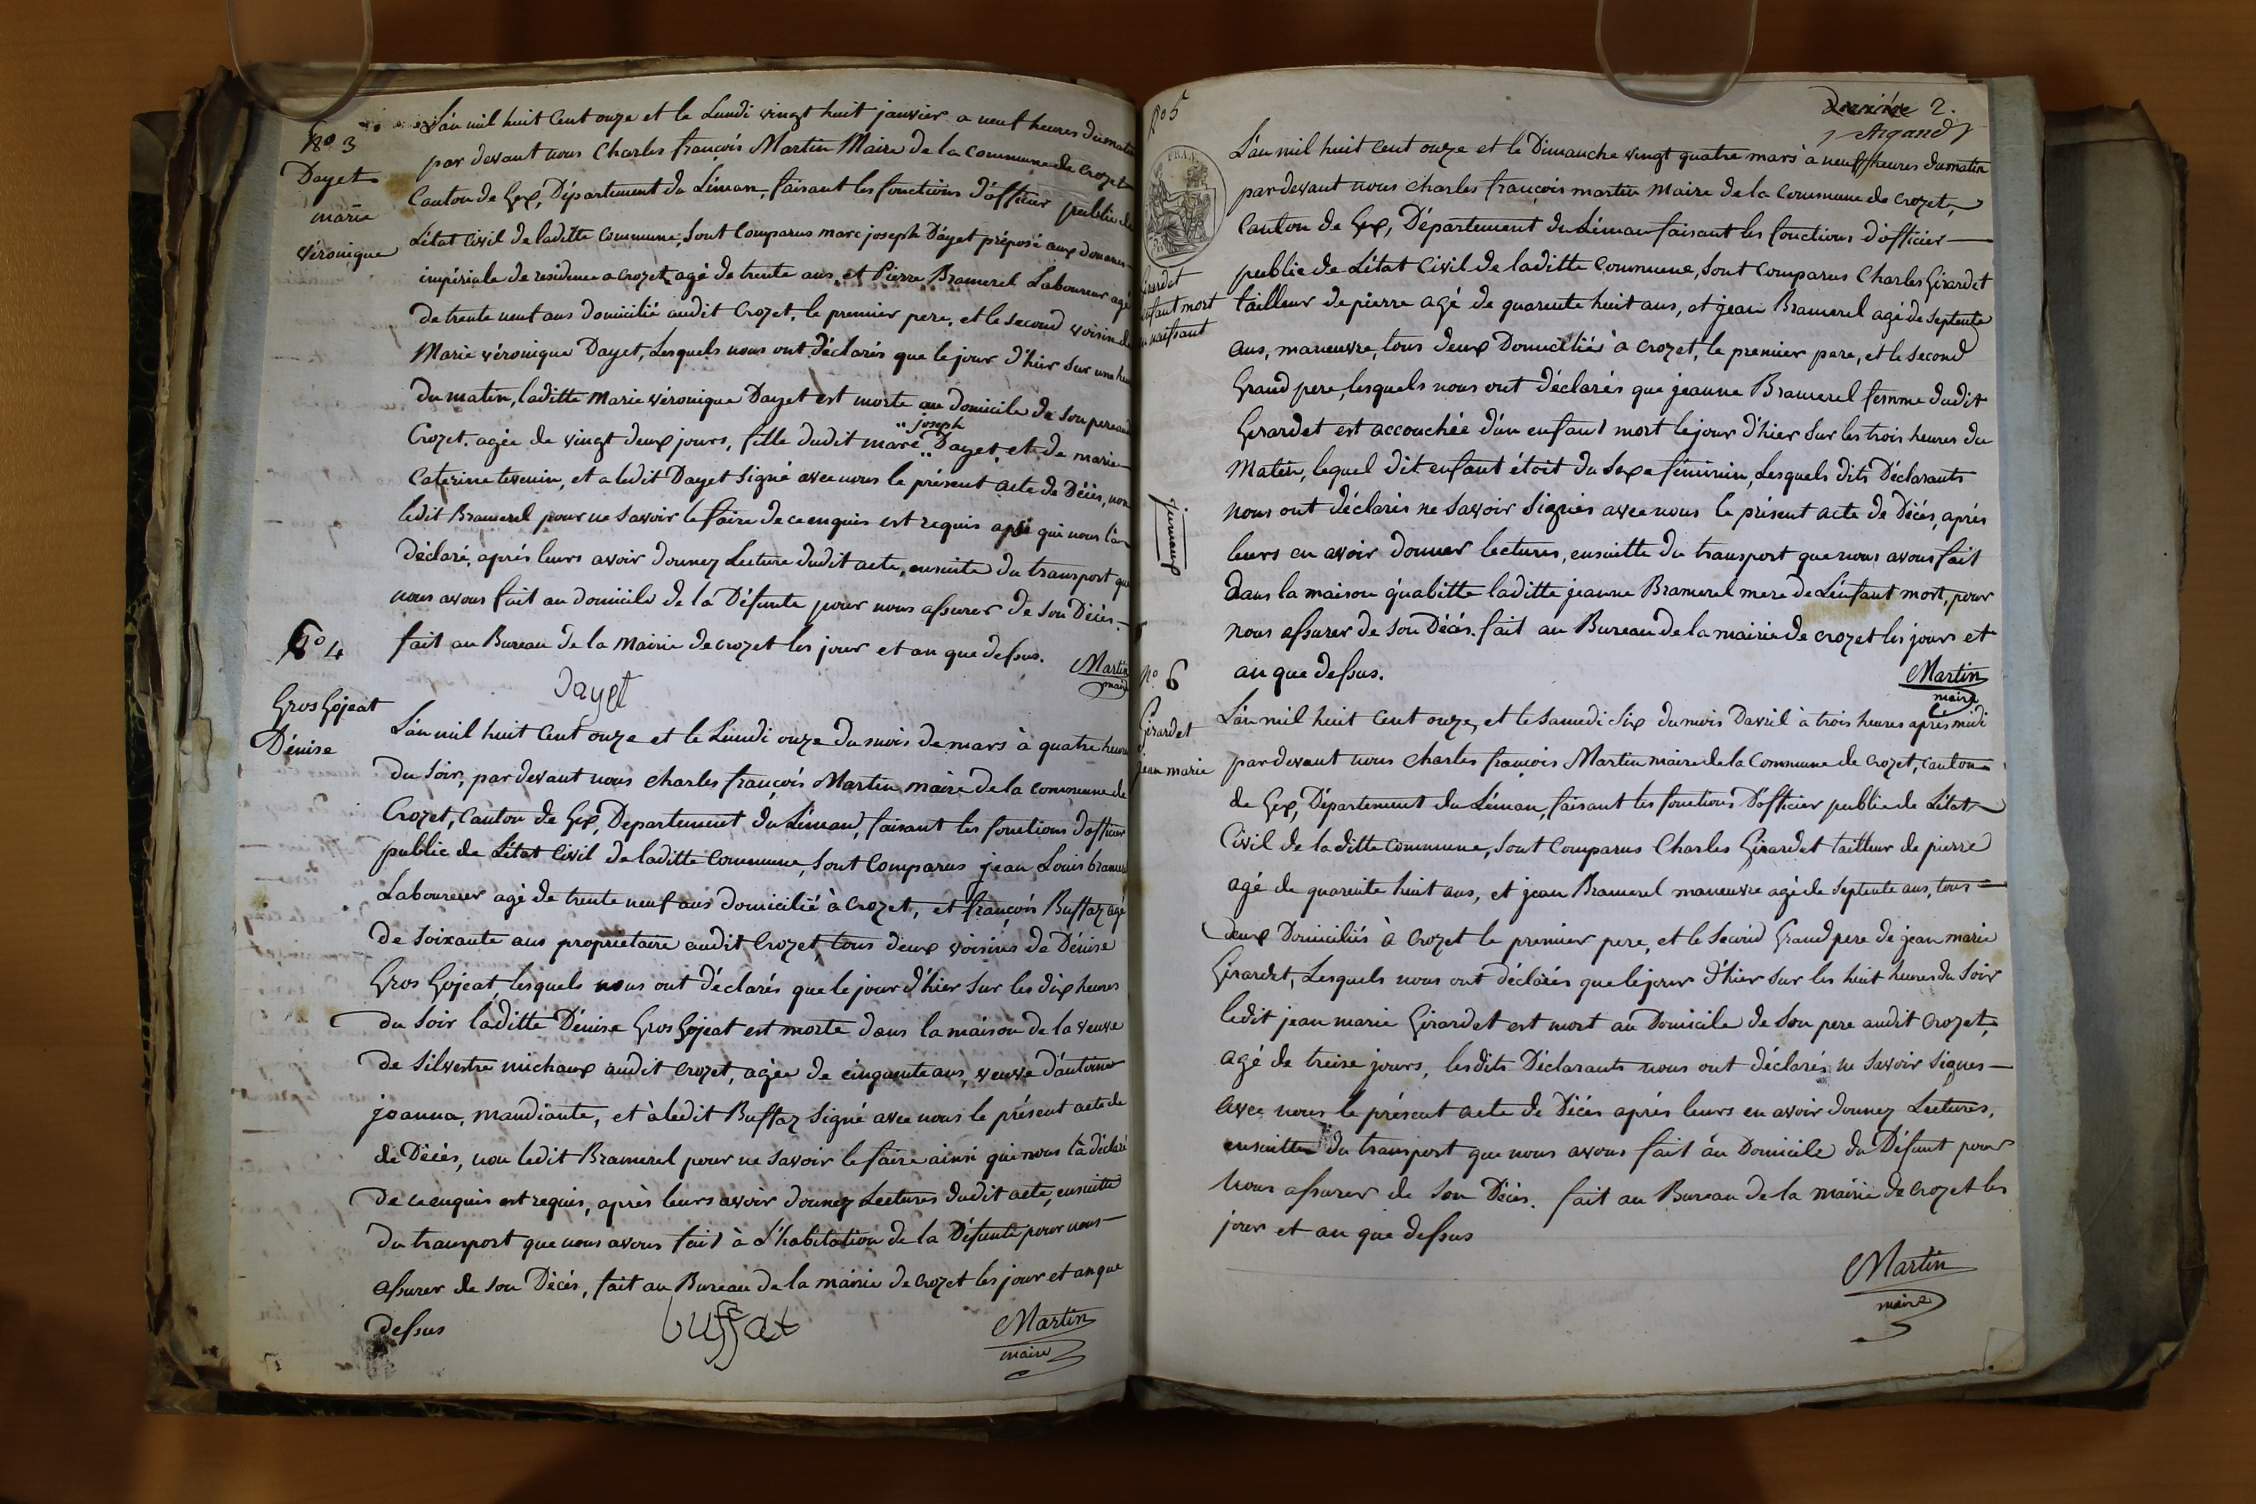 No 3
Dayet
marie
véronique
L'an mil huit Cent onze et le Lundi vingt huit janvier a neuf heures du matin
par devant nous Charles françois Martin Maire de la Commune de Crozet
Canton de Gex, Département du Léman, faisant les fonctions d'officier public de
L'état Civil de laditte Commune, sont Comparus marc joseph Dayet préposé aux douanes
impériale de residence a Crozet, agé de trente ans, et Pierre Bramerel Laboureur agé
de trente neuf ans domicilié audit Crozet, le premier pere, et le second voisin de
Marie véronique Dayet, Lesquels nous ont déclarés que le jour d'hier sur une heure
du matin, laditte Marie véronique Dayet est morte au domicile de son pere audit
Crozet. agée de vingt deux jours, fille dudit marc joseph Dayet, et de marie
Caterine tevenin, et a ledit Dayet signé avec nous le présent acte de Décès, non
ledit Bramerel pour ne savoir le faire de ce enquis est requis qui nous l'a
déclaré, après leurs avoir donnez Lecture dudit acte, ensuite du transport que
nous avons fait au domicile de la Défunte pour nous assurer de son Décès.
fait au Bureau de la Mairie de crozet les jour et an que dessus.
Dayet
Martin
maire
No 4
Gros Gojeat
Dénise
L'an mil huit Cent onze et le Lundi onze du mois de mars à quatre heures
du soir, par devant nous Charles françois Martin maire de la commune de
Crozet, Canton de Gex, Departement du Léman, faisant les fonctions d'officier
public de L'état Civil de laditte Commune, sont Comparus jean Louis bramerel
Laboureur agé de trente neuf ans domicilié à Crozet, et françois Buffaz agé
de soixante ans proprietaire audit Crozet, tous deux voisins de Dénise
Gros Gojeat, lesquels nous ont déclarés que le jour d'hier sur les dix heures
du soir laditte Dénise Gros Gojeat est morte dans la maison de la veuve
de silvestre michaux audit Crozet, agée de cinquante ans, veuve d'antoine
joanna, mandiante, et à ledit Buffaz signé avec nous le présent acte de
de Décès, non ledit Bramerel pour ne savoir le faire ainsi qui nous l'a déclaré
de ce enquis est requis, après leurs avoir donnez Lectures dudit acte, ensuitte
du transport que nous avons fait à L'habitation de la Défunte pour nous
assurer de son Décès, fait au Bureau de la mairie de Crozet les jour et an que
dessus
buffat
Martin
maire
Deuxième 2.
Argand
No 5
Girardet
enfant mort
en naissant
L'an mil huit cent onze et le Dimanche vingt quatre mars à neuf heures du matin
par devant nous charles françois martin Maire de la Commune de Crozet,
Canton de Gex, Département du Léman faisant les fonctions d'officier
public de L'état Civil de laditte Commune, sont Comparus Charles Girardet
tailleur de pierre agé de quarente huit ans, et jean Bramerel agé de septente
ans, maneuvre, tous deux Domiciliés à Crozet, le premier pere, et le second
Grand pere, lesquels nous ont déclarés que jeanne Bramerel femme dudit
Gerardet est accouchée d'un enfant mort le jour d'hier sur les trois heures du
Matin, lequel dit enfant étoit du sexe féminin, Lesquels dits Déclarants
nous ont déclarés ne savoir signés avec nous le présent acte de Décès, après
leurs en avoir donner lectures, ensuitte du transport que nous avons fait
dans la maison qu'abitte laditte jeanne Bramerel mere de L'enfant mort, pour
nous assurer de son Décés. fait au Bureau de la mairie de crozet les jours et
an que dessus.
Martin
maire
No 6
Girardet
jean marie
L'an mil huit Cent onze, et le samedi six du mois Davril à trois heures après midi
par devant nous charles françois Martin maire de la Commune de Crozet, canton
de Gex, Département du Léman, faisant les fonctions D'officier public de L'état
Civil de la ditte Commune, sont Comparus Charles Girardet tailleur de pierre
agé de quarente huit ans, et jean Bramerel maneuvre agé de septente ans, tous
deux Domiciliés à Crozet le premier pere, et le second Grand pere de jean marie
Girardet, Lesquels nous ont déclarés que le jour d'hier sur les huit heures du soir
ledit jean marie Girardet est mort au Domicile de son pere audit Crozet,
agé de treise jours, lesdits Déclarants nous ont déclarés ne savoir signes
avec nous le présent acte de Décés après leurs en avoir donnez Lectures,
ensuitte du transport que nous avons fait au Domicile du Défunt pour
nous assurer de son Décès. fait au Bureau de la mairie de Crozet les
jour et an que dessus
Martin
maire